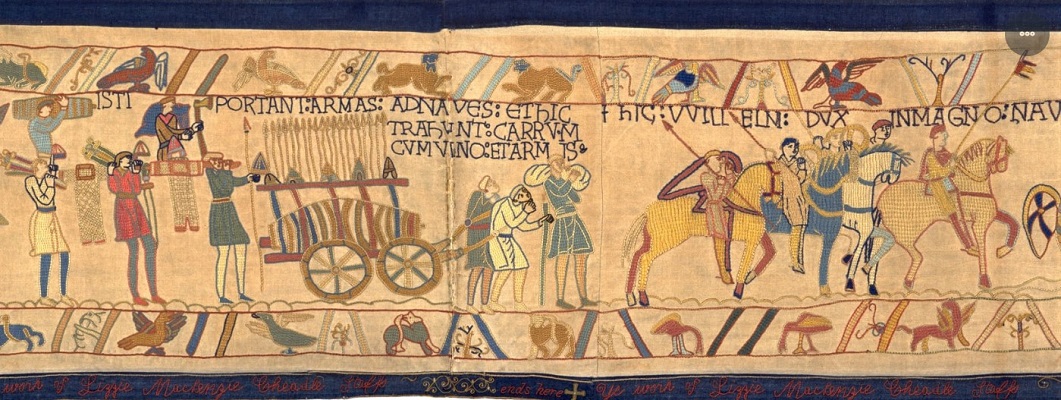 ISTI PORTANT: ARMAS: ADNAVES: ET hIC
TRAhVNT: CARRVM
CVM VINO: ET ARMIS
† hIC: VVILLELM: DVX INMAGNO: NAV
work of Lizzie Mackenzie Cheadle Staffs ends here Ye work of Lizzie Mackenzie Staffs